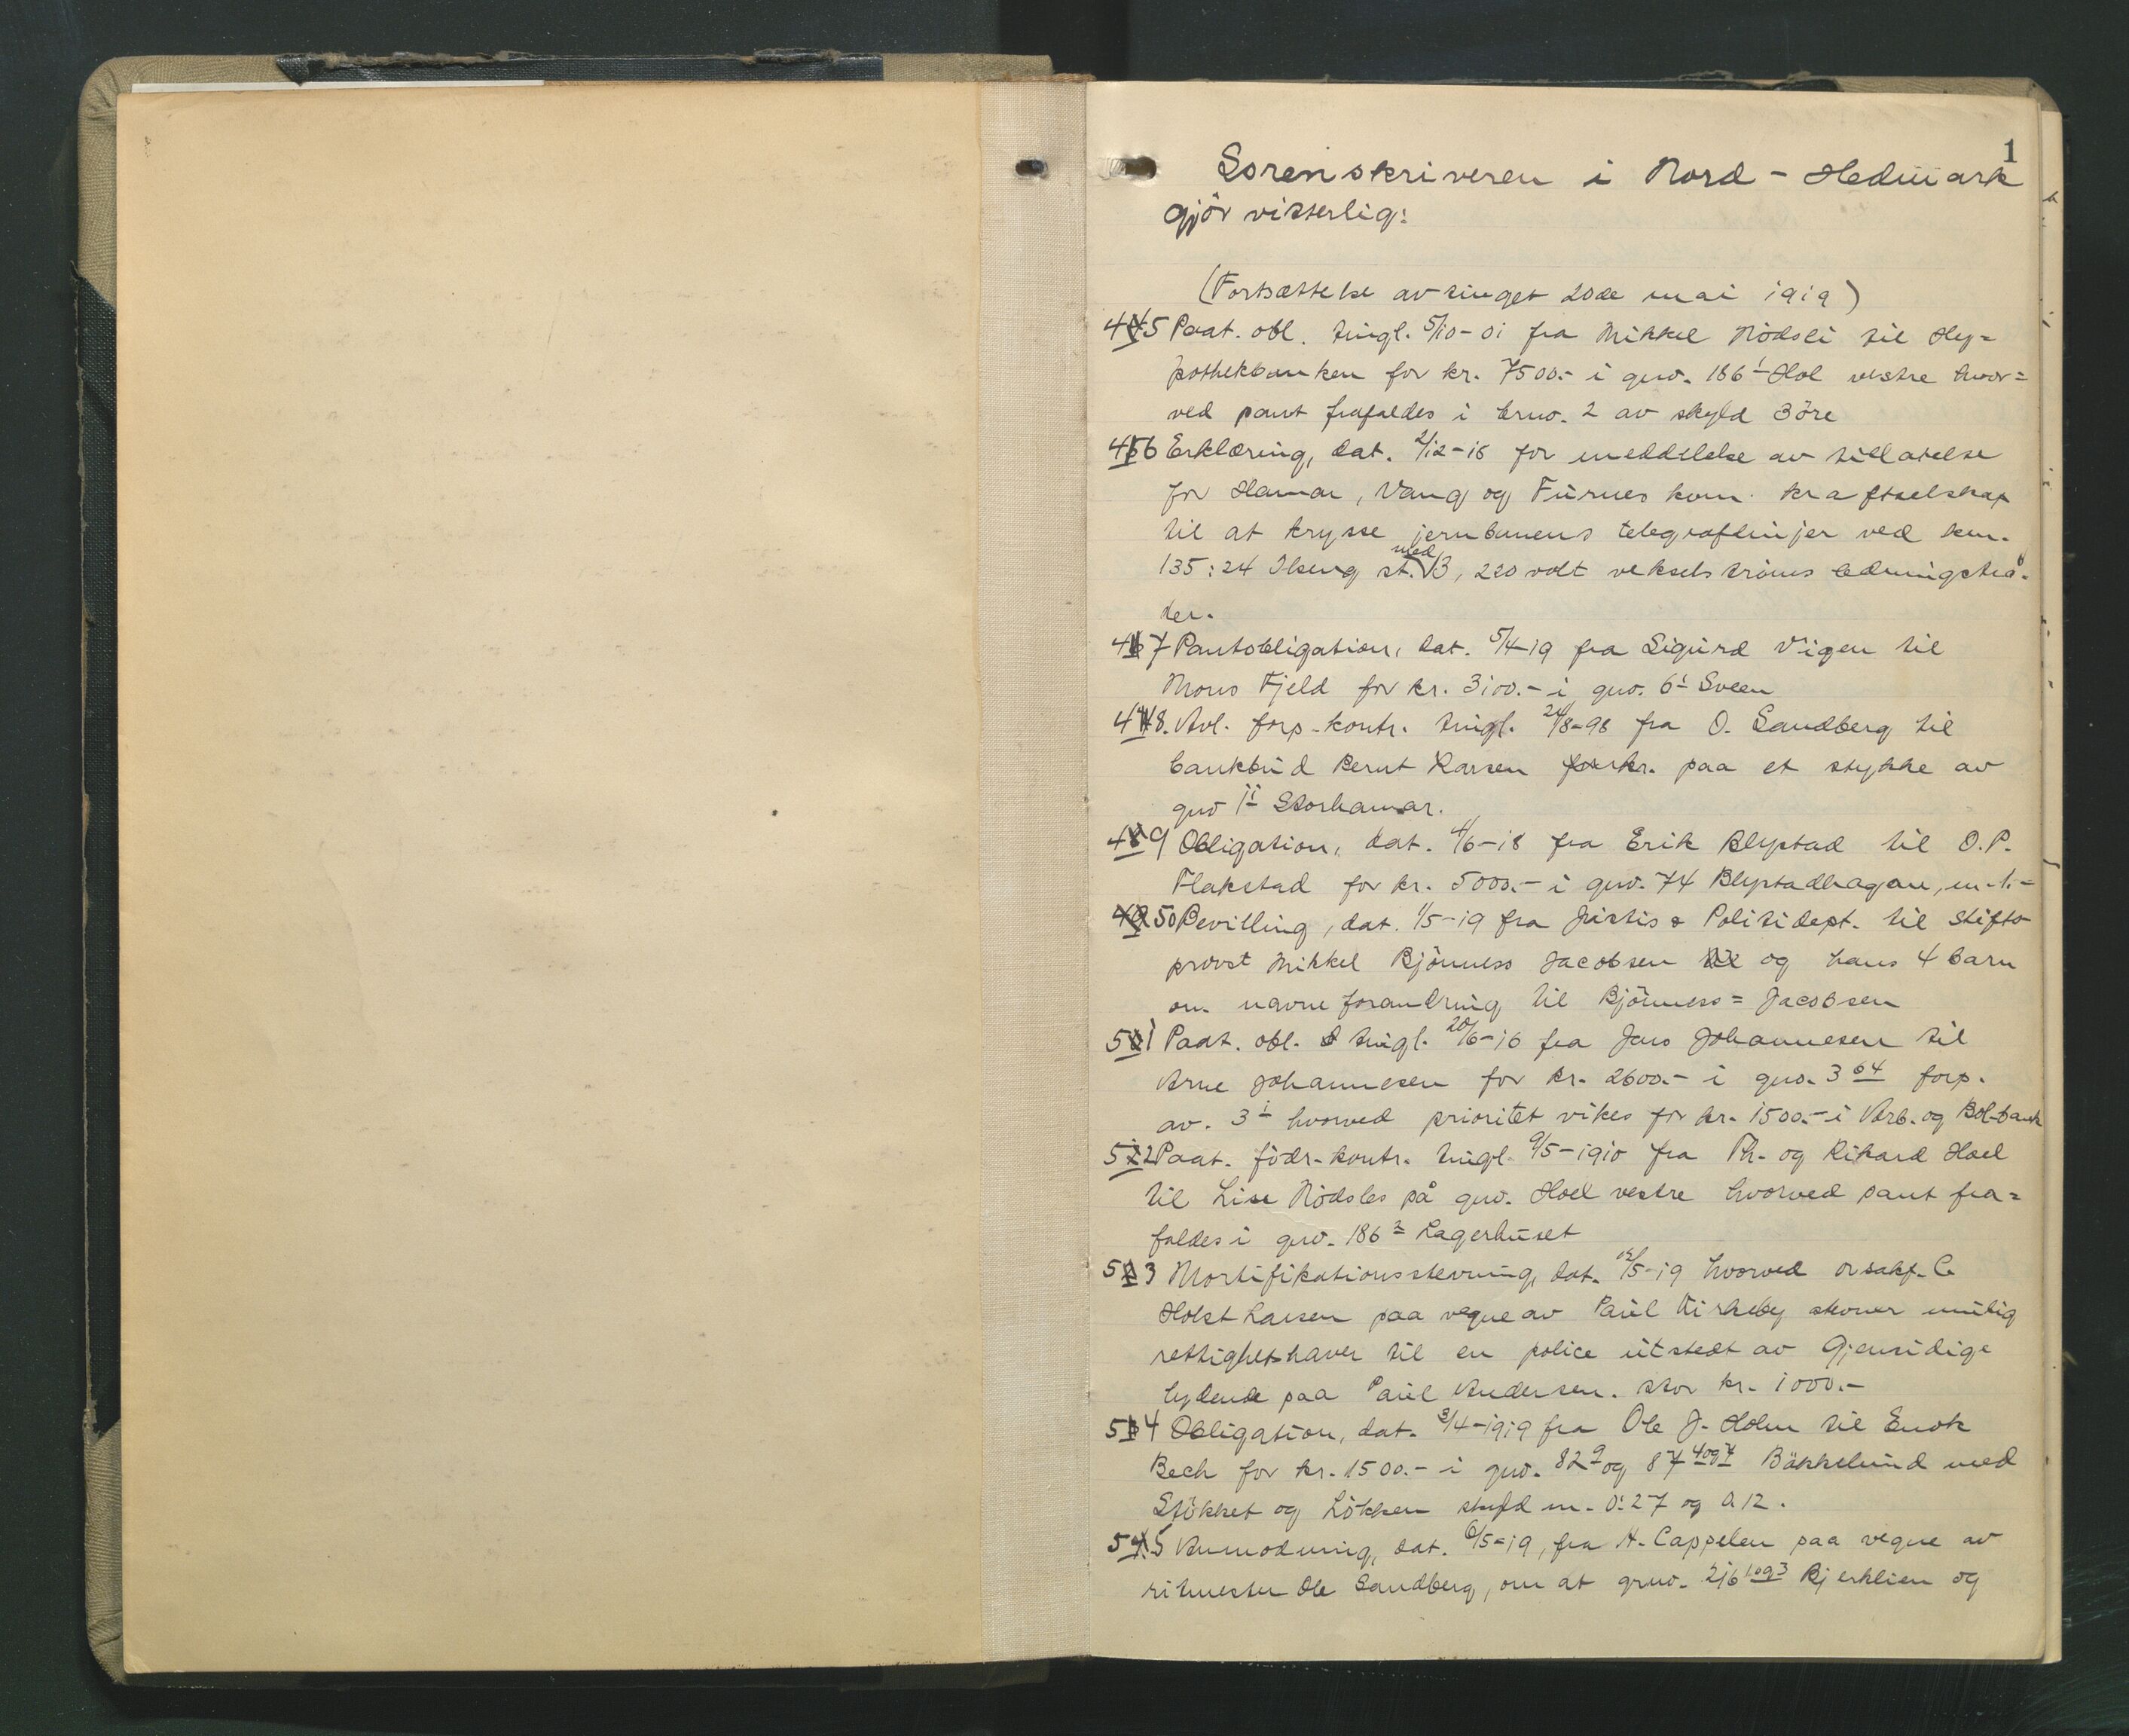 1
Sorenskriveren i Nord-Hedmark
gjör vitterlig:
(Fortsættelse av tinget 20de mai 1919)
45 Paat. obl. tingl. 5/10-01 fra Mikkel Rödsli til Hy=
pothekbanken for kr. 7500.- i gno. 186 1 Hol vestre hvor=
ved pant frafaldes i brno. 2 av skyld 3 öre
46 Erklæring, dat. 2/12-18 for meddelelse av tillatelse
for Hamar, Vang og Furnes kom. kraftselskap
til at krysse jernbanens telegraflinjer ved km.
135:24 Ilseng st. med 3, 220 volt vekselströms ledningstrå-
der.
47 Pantobligation, dat. 5/4-19 fra Sigurd Vigen til
Mons Fjeld for kr. 3100.- i gno. 6 1 Sveen
48. Avl. forp-kontr. tingl. 24/8-98 fra O. Sandberg til
bankbud Bernt Larsen paa et stykke av
gno 1 1 Storhamar.
49 Obligation, dat. 4/6-18 fra Erik Blystad til O.P.
Flakstad for kr. 5000.- i gno. 74 Blystadhagan, m.t.-
50 Bevilling, dat. 1/5-19 fra Justis & Politidept. til stifts-
provst Mikkel Bjönness Jacobsen og hans 4 barn
om navneforandring til Bjönness=Jacobsen
51 Paat. obl. tingl. 20/6-16 fra Jens Johannesen til
Arne Johannesen for kr. 2600.- i gno. 3 64 forp.
av. 3 1 hvorved prioritet vikes for kr. 1500.- i Arb. og Bol-bank
52 Paat. födr-kontr. tingl. 9/5-1910 fra Th. og Rikard Hoel
til Lise Rödsles på gno. Hoel vestre hvorved pant fra=
faldes i gno. 186 2 Lagerhuset
53 Mortifikationsstevning, dat. 12/5-19 hvorved orsakf. C
Holst Larsen paa vegne av Paul Kirkeby stevner mulig
rettighetshaver til en police utstedt av Gjensidige
lydende paa Paul Andersen. stor kr. 1000.-
54 Obligation, dat. 3/4-1919 fra Ole J. Holm til Enok
Bech for kr. 1500.- i gno. 82 9 og 87 4 og 7 Bäkkelund med
Stökket og Lökken skyld m. 0:27 og 0.12.
55 Anmodning, dat. 6/5-19, fra H. Cappelen paa vegne av
ritmester Ole Sandberg, om at grno. 216 1 og 3 Bjerklien og